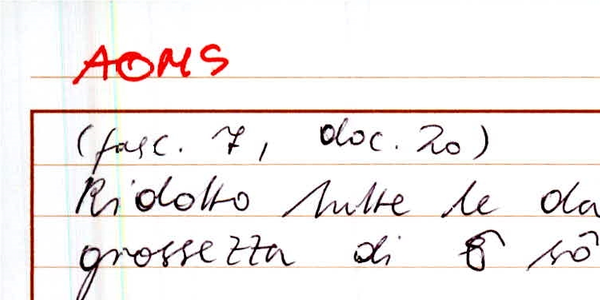 AOMS
(fasc. 7, doc. 20)
Ridotto tutte le da
grossezza di 8